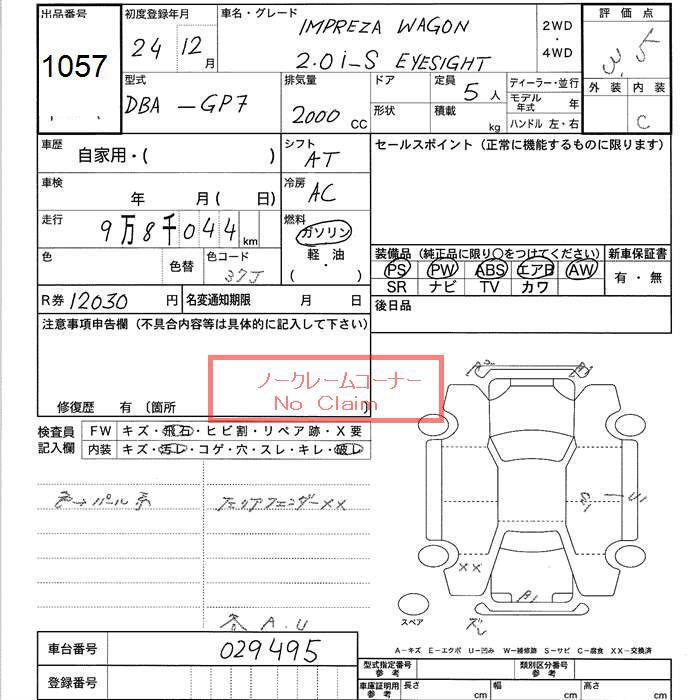 出品番号 初度登録年月 車名・グレード 2WD ・ 4WD 評価点
1057 24 12月 IMPREZA WAGON 3.5
2.0i-S EYESIGHT
外装 内装
C
型式 排気量 ドア 定員 5人 ディーラー・並行
DBA-GP7 2000 CC 形状 積載 kg モデル年式 年
ハンドル 左・右
車歴 自家用・( ) シフト AT セールスポイント(正常に機能するものに限ります)
車検 年 月( 日) 冷房 AC
走行 9万8千044km 燃料 ガソリン 軽・油 ( ・ )
色 色替 色コード 37J
装備品(純正品に限り○をつけてください) 新車保証書
PS PW ABS エアB AW 有・無
SR ナビ TV カワ
R券 12030円 名変通知期限 月 日 後日品
注意事項申告欄(不具合内容等は具体的に記入して下さい)
ノークレームコーナー
No Claim
修復歴 有 〔箇所 〕
検査員記入欄 FW キズ・飛石・ヒビ割・リペア跡・X要
内装 キズ・汚レ・コゲ・穴・スレ・キレ・破レ
色→パール系 リアフェンダーXX
A.U
A1
XX
スペア
A-キズ E-エクボ U-凹み W-補修跡 S-サビ C-腐食 XX-交換済
車台番号 029495
登録番号
型式指定番号 参考 類別区分番号 参考
車庫証明用 参考 長さ cm 幅 cm 高さ cm